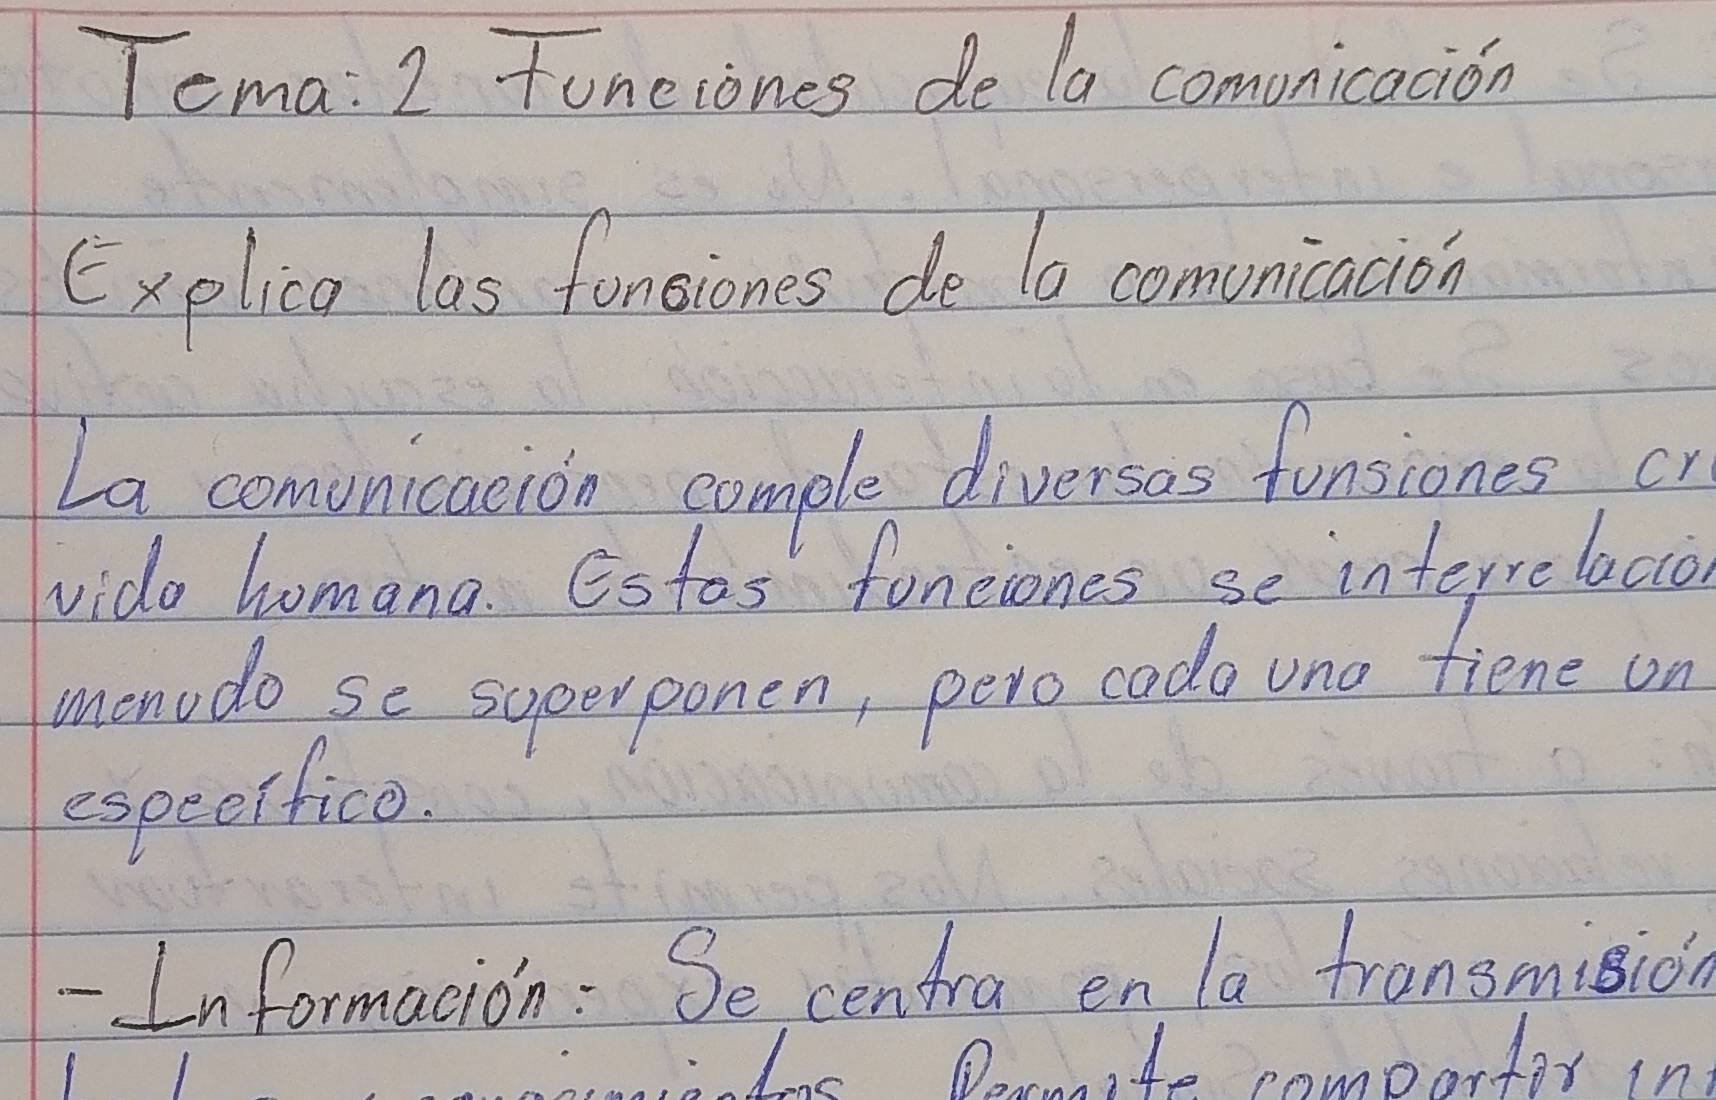 Tema: 2 Funciones de la comunicación
Explica las funsiones de la comunicación
La comunicación comple diversas funsiones
vida homana. Estas funciones se interrelacion
menudo se superponen, pero cada una tiene un
específico.
- Información: Se centra en la transmisión
conocimientos. Permite compartir in